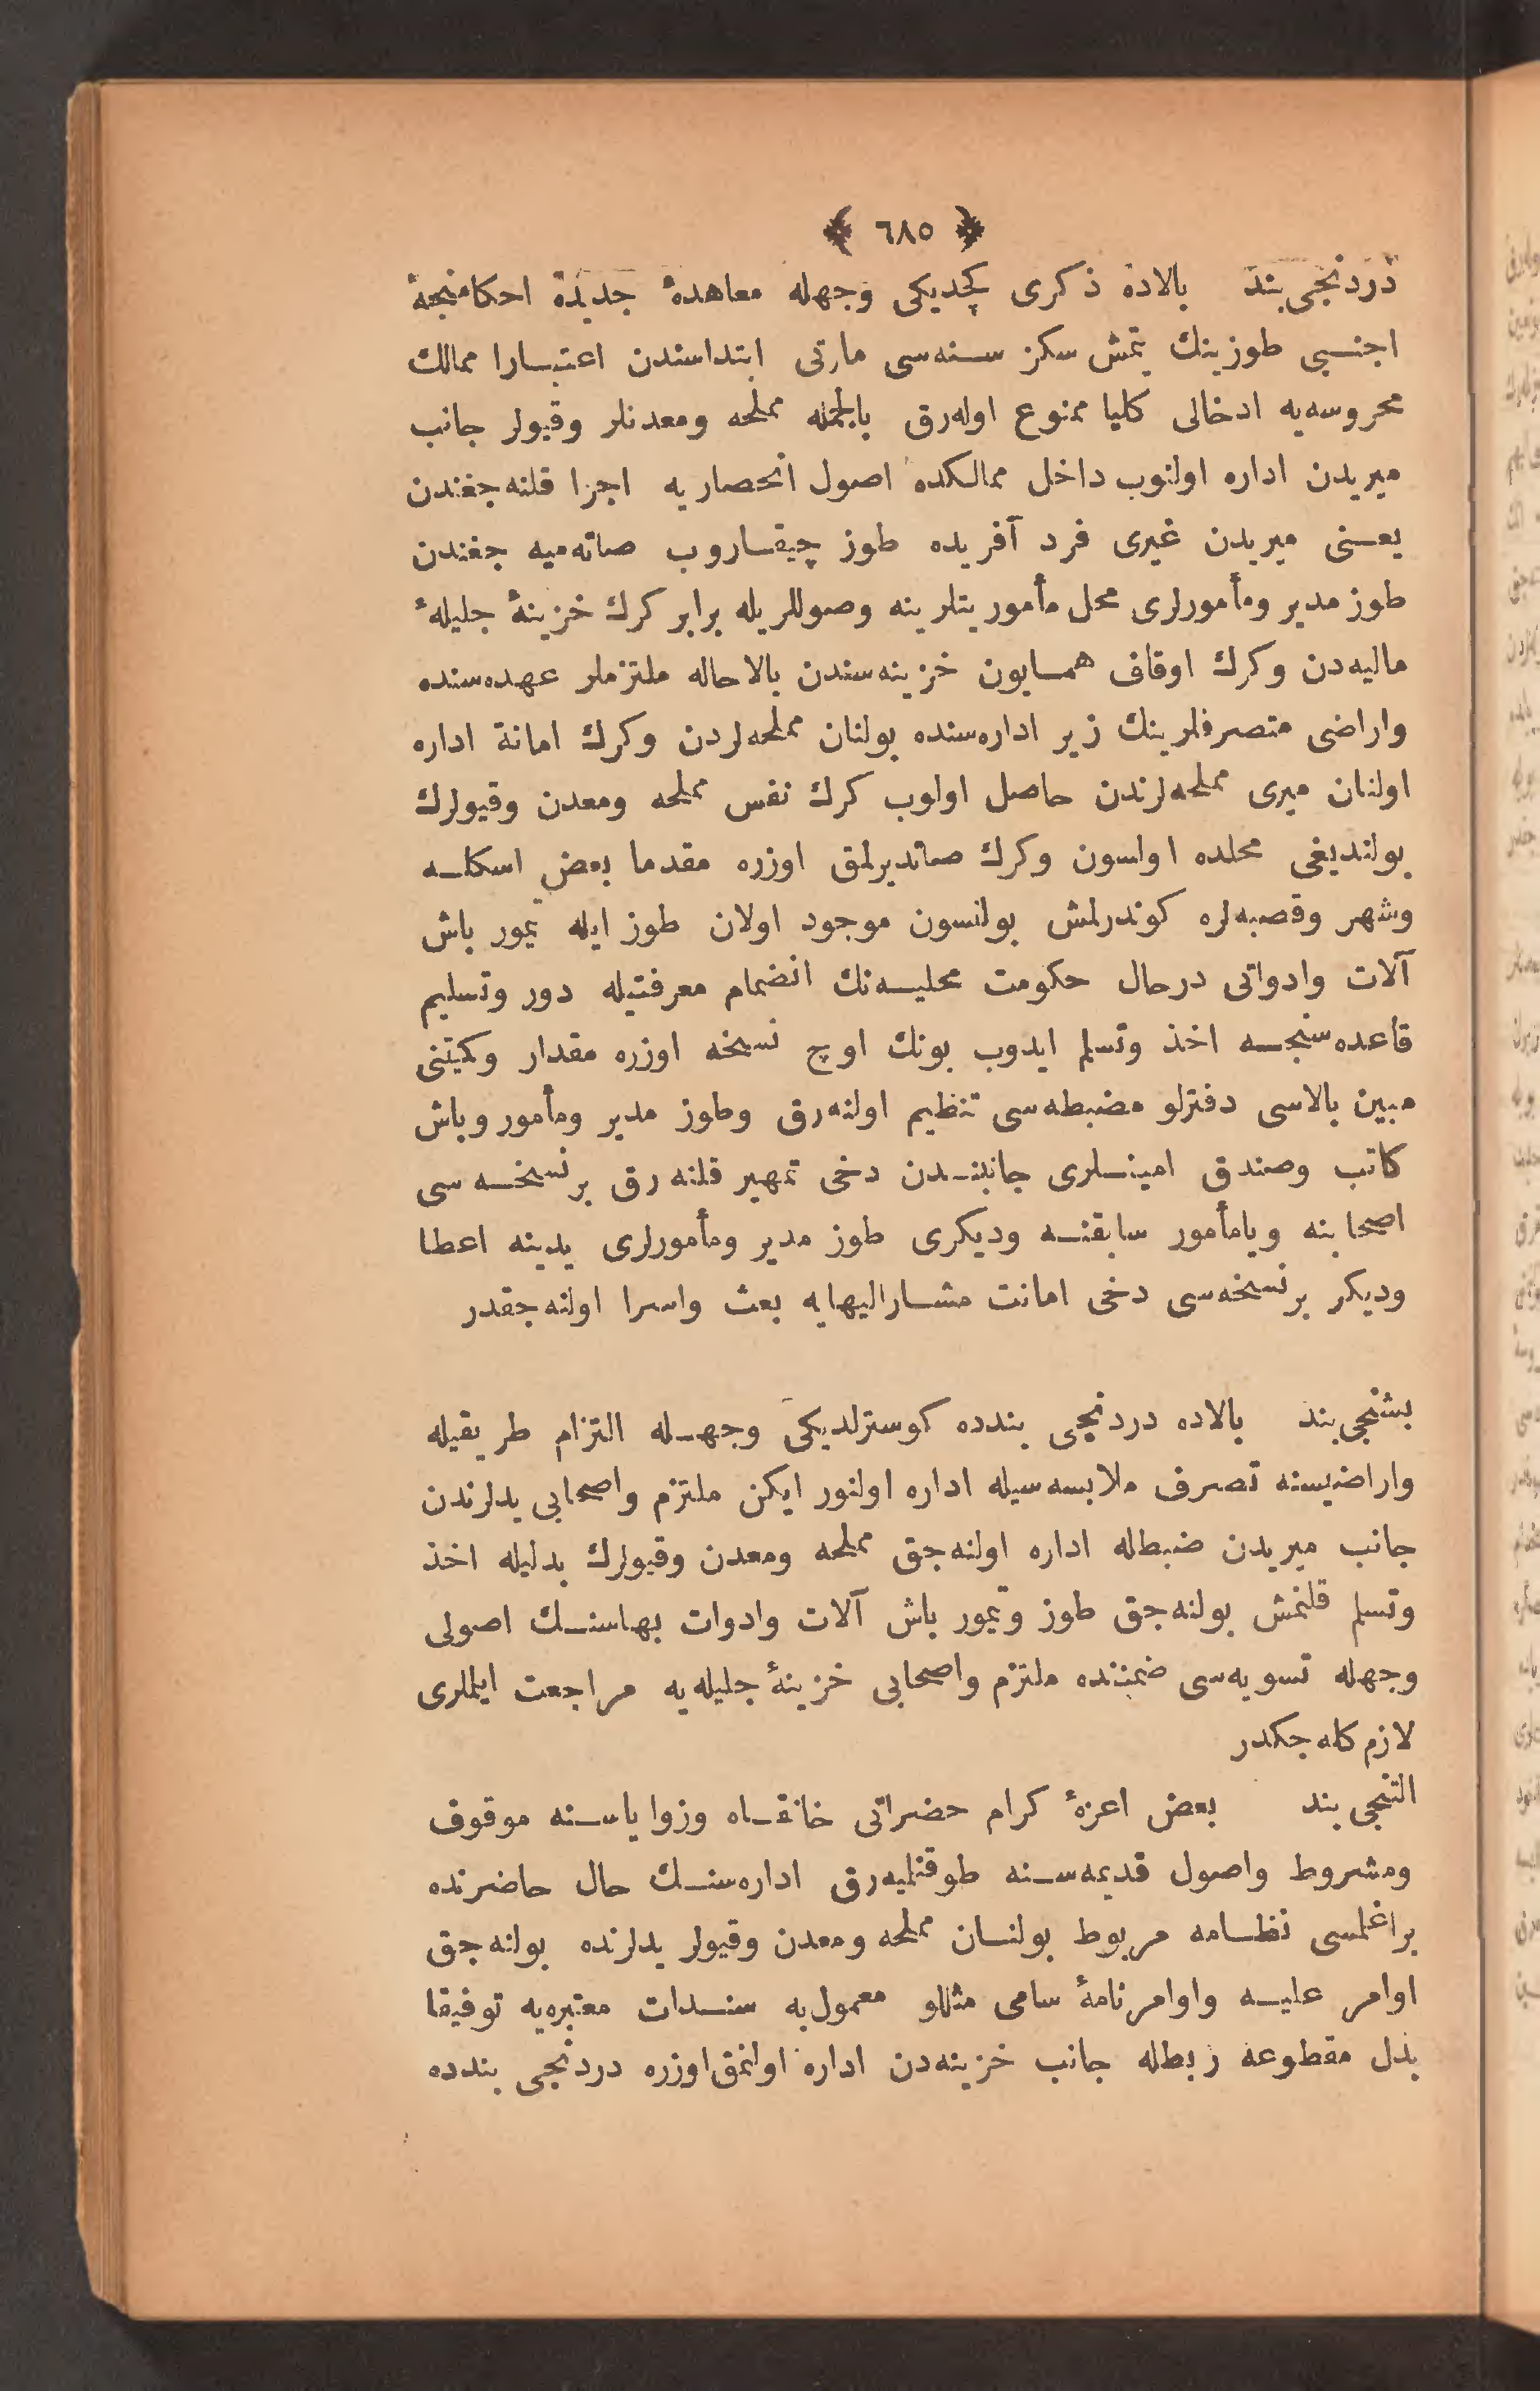 ﴿ ٦٨٥ ﴾
دردنجی بند بالاده ذكری كچدیكی وجهله معاهدهٔ جدیده احكامنجهٔ
اجنبی طوزینك یتمش سكز سنه‌سی مارتی ابتداسندن اعتبارا ممالك
محروسه‌یه ادخالی كلیا ممنوع اوله‌رق بالجمله مملحه ومعدنلر وقیولر جانب
میریدن اداره اولنوب داخل ممالكده اصول انحصاریه اجرا قلنه‌جغندن
یعنی میریدن غیری فرد آفریده طوز چیقاروب صاته‌میه جغندن
طوز مدیر ومأمورلری محل مأموریتلرینه وصوللریله برابر كرك خزینهٔ جلیلهٔ
مالیه‌دن وكرك اوقاف همایون خزینه‌سندن بالاحاله ملتزملر عهده‌سنده
واراضی متصرفلرینك زیر اداره‌سنده بولنان مملحه‌لردن وكرك امانة اداره
اولنان میری مملحه‌لرندن حاصل اولوب كرك نفس مملحه ومعدن وقیولرك
بولندیغی محلده اولسون وكرك صاتدیرلمق اوزره مقدما بعض اسكله
وشهر وقصبه‌لره كوندرلمش بولنسون موجود اولان طوز ایله تیمور باش
آلات وادواتی درحال حكومت محلیه‌نك انضمام معرفتیله دور وتسلیم
قاعده‌سنجه اخذ وتسلم ایدوب بونك اوچ نسخه اوزره مقدار وكمیتنی
مبین بالاسی دفترلو مضبطه‌سی تنظیم اولنه‌رق وطوز مدیر ومأمور وباش
كاتب وصندق امینلری جانبندن دخی تمهیر قلنه‌رق بر نسخه‌سی
اصحابنه ویامأمور سابقنه ودیكری طوز مدیر ومأمورلری یدینه اعطا
ودیكر بر نسخه‌سی دخی امانت مشارالیهایه بعث واسرا اولنه‌جقدر
بشنجی بند بالاده دردنجی بندده كوسترلدیكی وجهله التزام طریقیله
واراضیسنه تصرف ملابسه‌سیله اداره اولنور ایكن ملتزم واصحابی یدلرندن
جانب میریدن ضبطله اداره اولنه‌جق مملحه ومعدن وقیولرك بدلیله اخذ
وتسلم قلنمش بولنه‌جق طوز وتیمور باش آلات وادوات بهاسنك اصولی
وجهله تسویه‌سی ضمننده ملتزم واصحابی خزینهٔ جلیله‌یه مراجعت ایلملری
لازم كله‌جكدر
التنجی بند بعض اعزهٔ كرام حضراتی خانقاه وزوایاسنه موقوف
ومشروط واصول قدیمه‌سنه طوقنلمیه‌رق اداره‌سنك حال حاضرنده
براغلمسی نظامه مربوط بولنان مملحه ومعدن وقیولر یدلرنده بولنه‌جق
اوامر علیه واوامرنامهٔ سامی مثللو معمول‌به سندات معتبره‌یه توفیقا
بدل مقطوعه ربطله جانب خزینه‌دن اداره اولنمق اوزره دردنجی بندده